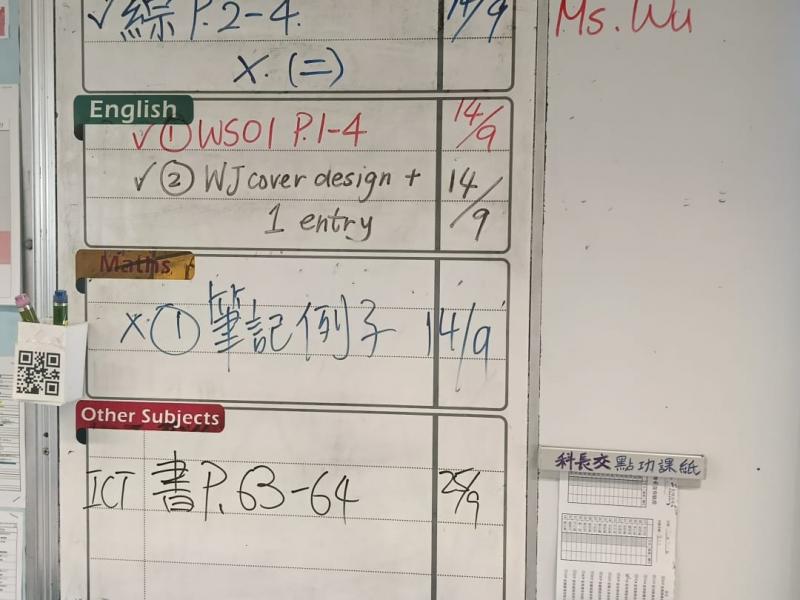 ✓ 綜 P.2-4. 14/9
X. (二)
Ms. Wu
English
✓ ① WS01 P.1-4 14/9
✓ ② WJ cover design + 14/9
1 entry
Maths
X. ① 筆記例子 14/9
Other Subjects
ICT 書 P. 63-64 25/9
科長交點功課紙